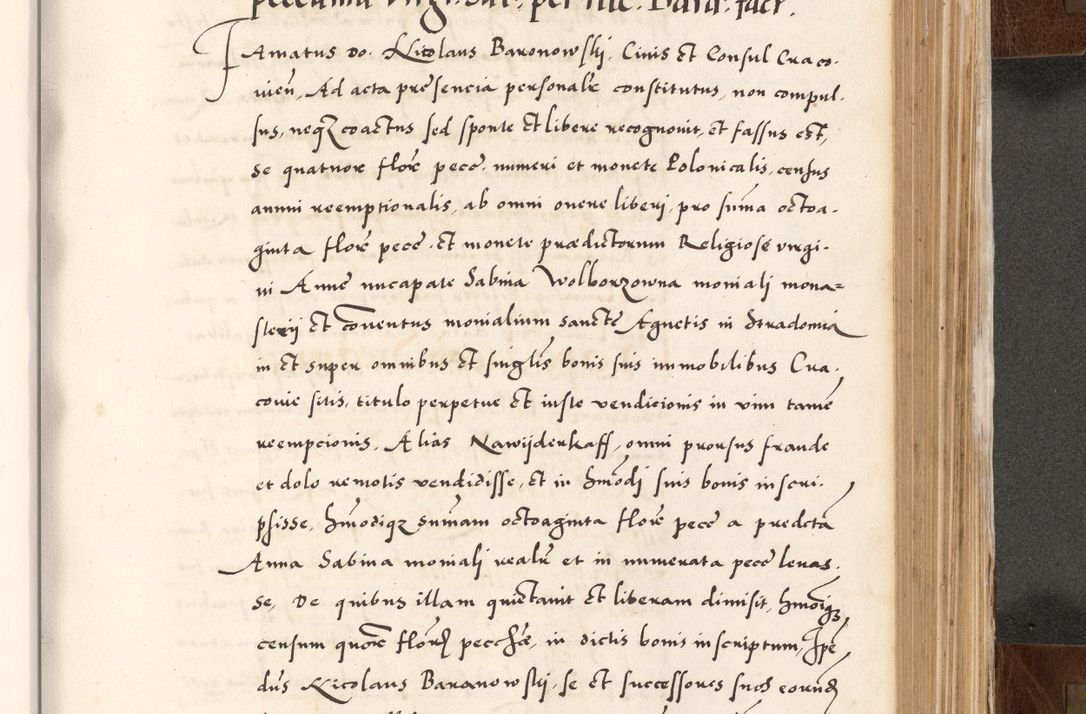 pecunia virgi. Sac. per Nic. Bara. fact.
Famatus do. Nicolaus Baronowskj. Ciuis et Consul Craco.
uien. Ad acta presencia personalr constitutus, non compul.
sus, neqz coactus sed sponte et libere recognouit, et fassus est,
se quatuor flor pecce. numeri et monete Polonicalis, census
annui reemptionalis, ab omni onere liberi, pro suma octoa.
ginta flor pecce. et monete prædictorum Religiose virgi.
ni Anne nucapate Sabina Wolborzowna moniali mona=
sterij et couentus monialium sancte Agnetis in Stradomia
in et super omnibus et singlis bonis suis immobilibus Cra.
couie sitis, titulo perpetue et iuste vendicionis in vim tame
reempcionis, Alias Nawijderkaff, omni prorsus fraude
et dolo remotis vendidisse, et in hmodj suis bonis inscri.
psisse, hmodiqz sumam octoaginta flor pecce a predcta
Anna Sabina moniali realr et in numerata pecce leuas.
se, De quibus illam quietauit et liberam dimisit, hmoiqz
censum quatuor flor pecchæ, in dictis bonis inscriptum, Ipe
dus Nicolaus Baranowskj, se et successores suos eorund